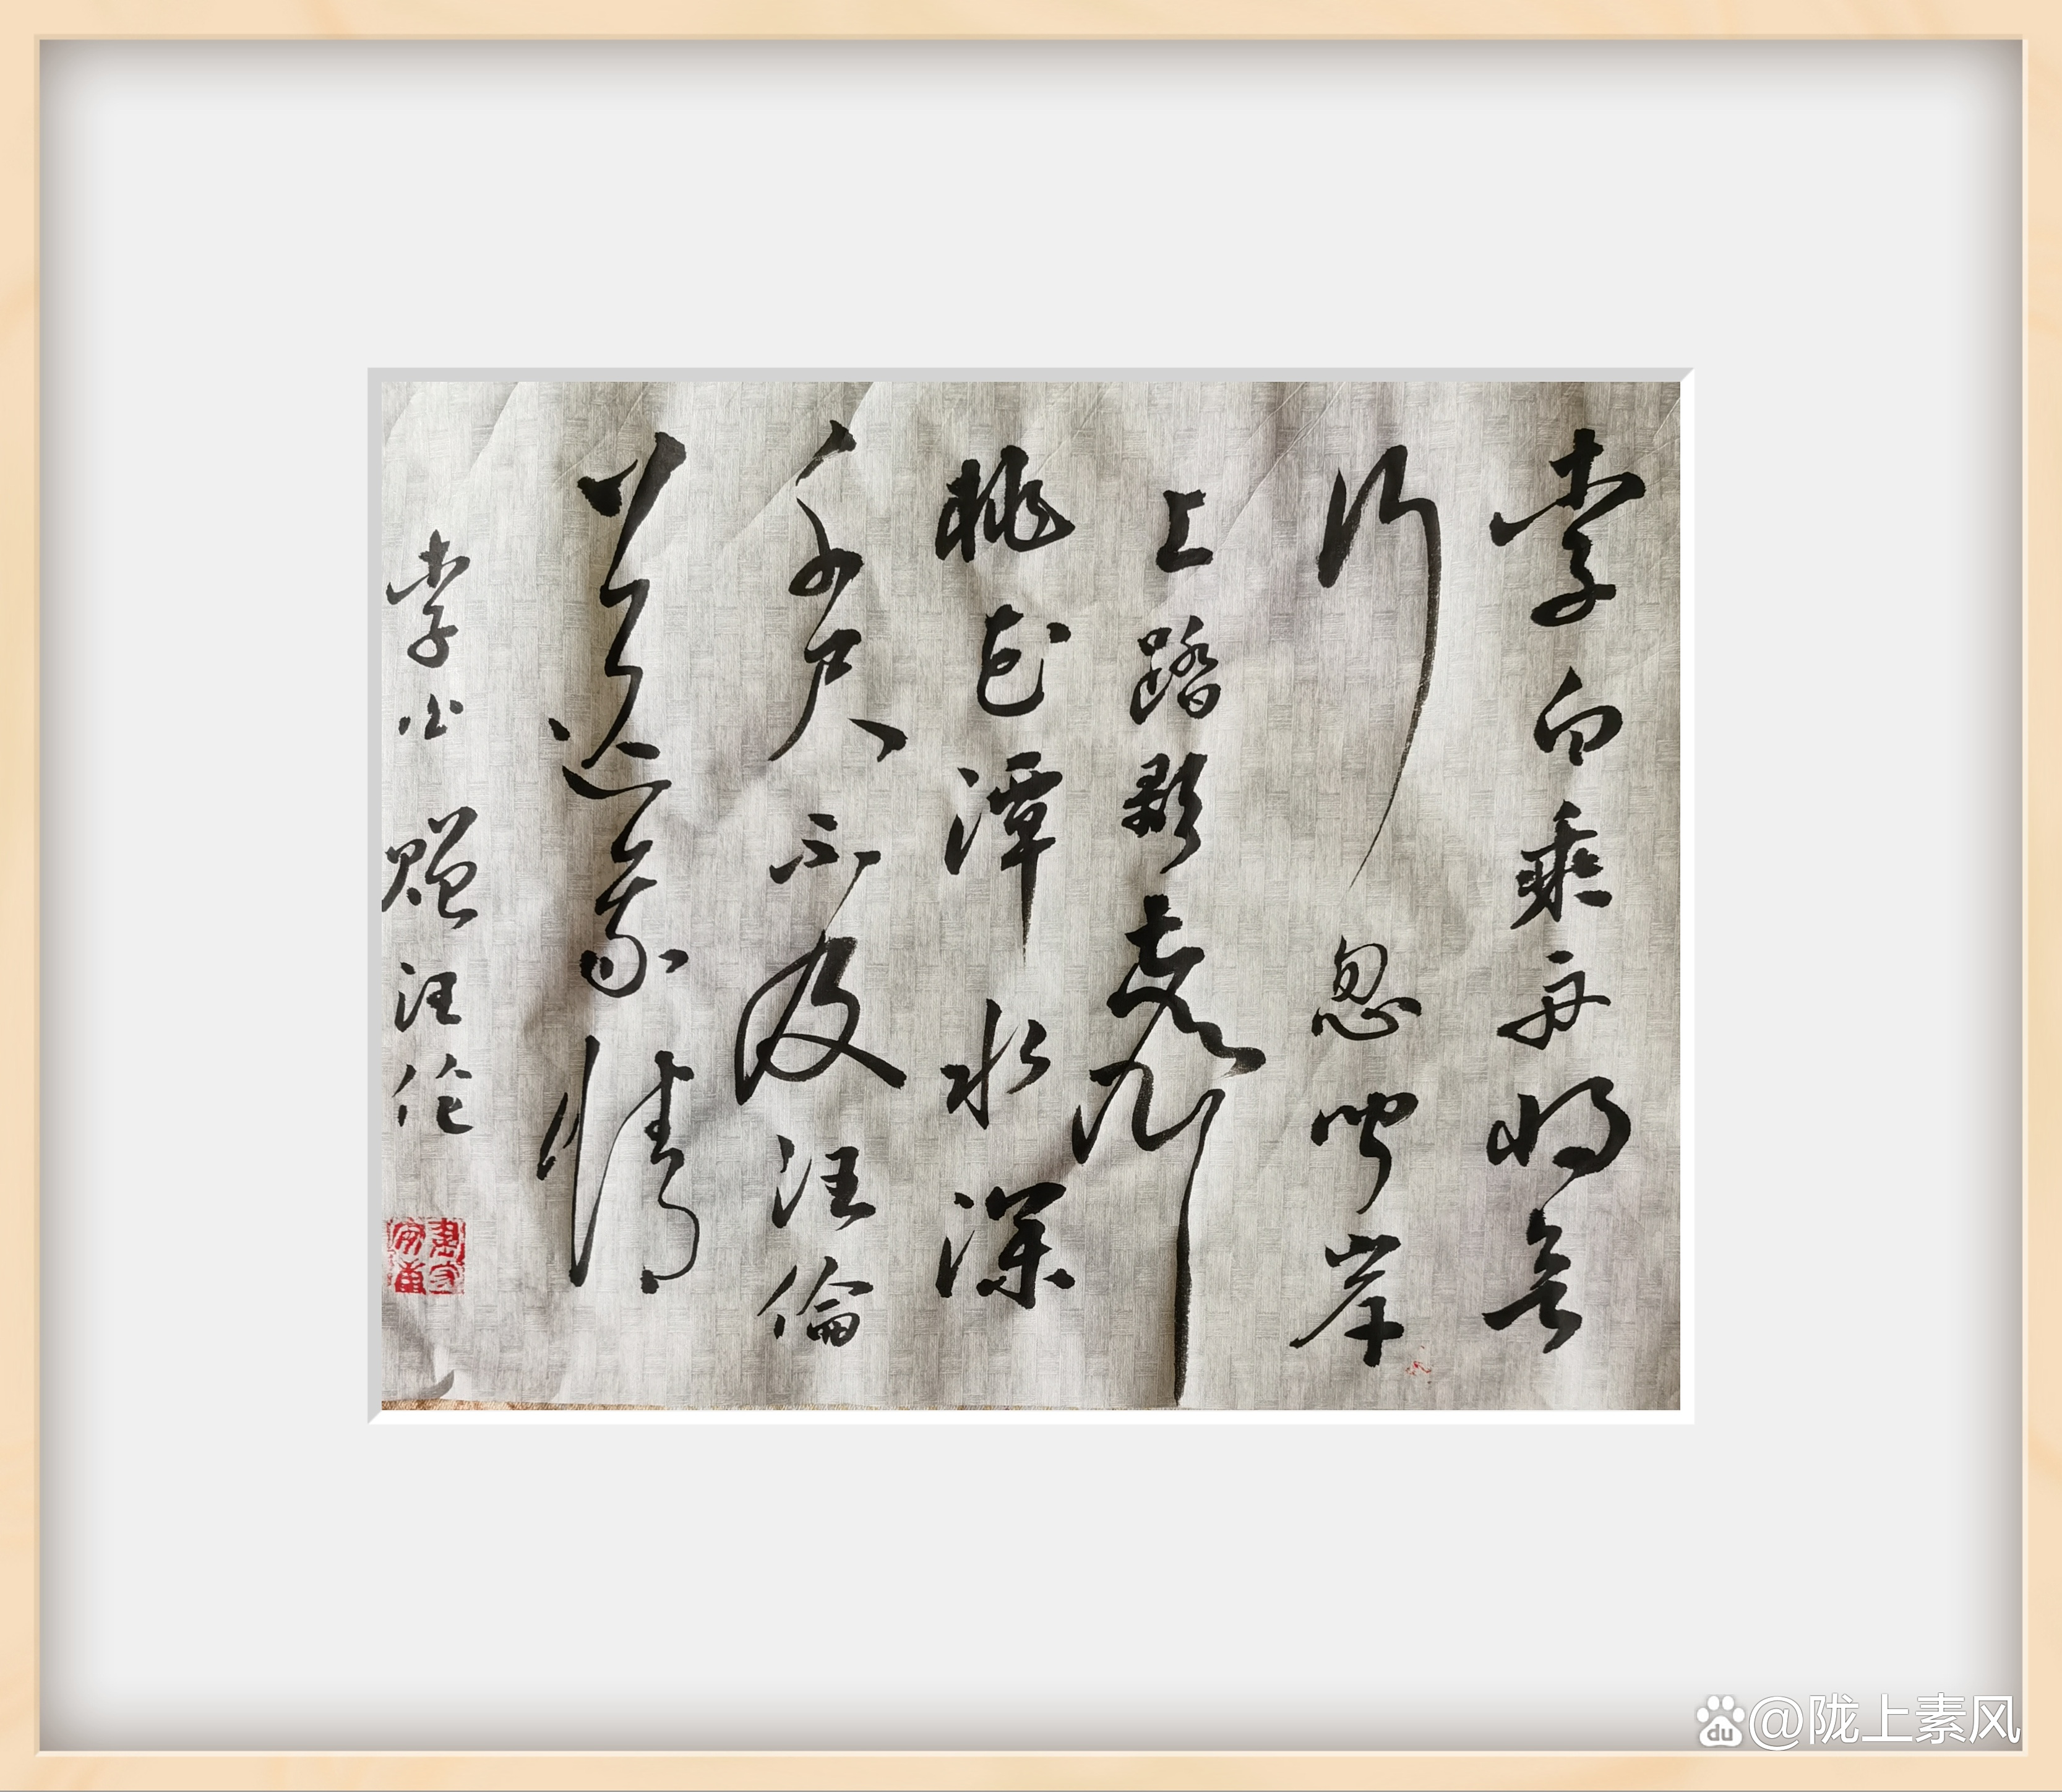 李白乘舟将欲
行忽闻岸
上踏歌聲
桃花潭水深
千尺不及汪倫
送我情
李白 赠汪伦
du @陇上素风